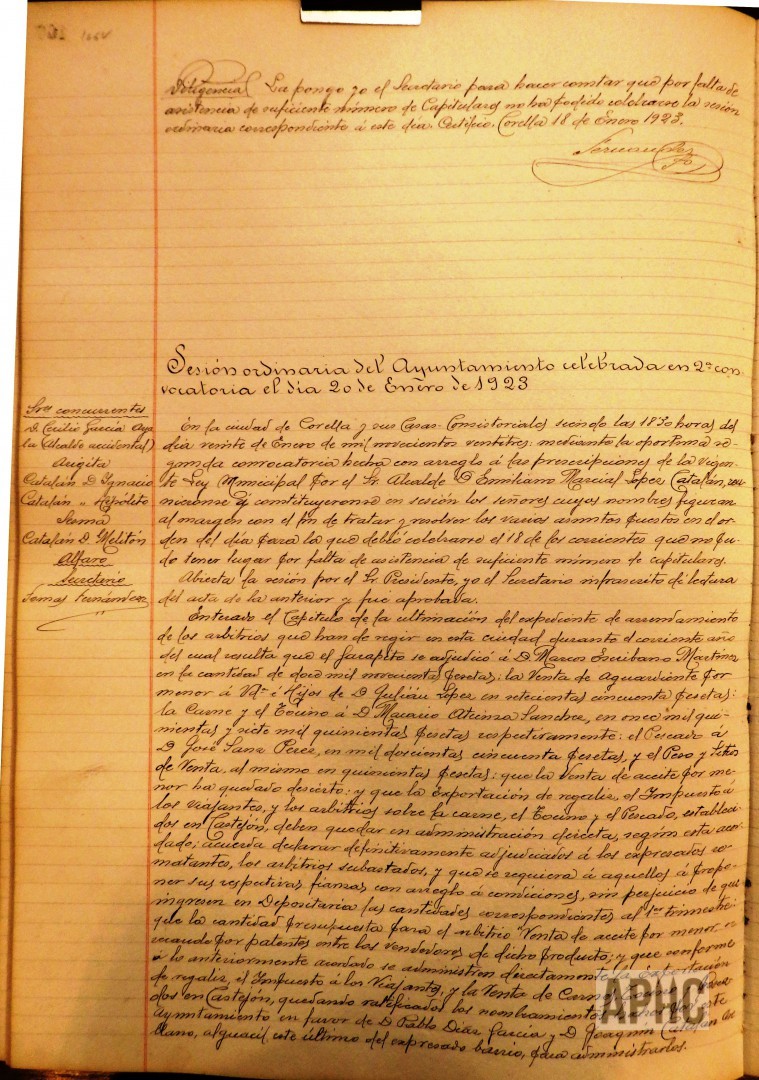 Diligencia. La pongo yo el Secretario para hacer constar que por falta de
asistencia de suficiente número de Capitulares no ha podido celebrarse la sesión
ordinaria correspondiente á este día. Certifico. Corella 18 de Enero 1923.
Sesión ordinaria del Ayuntamiento celebrada en 2ª con-
vocatoria el día 20 de Enero de 1923
Sres concurrentes
D. Cecilio Garcia Aya
la (Alcalde accidental)
Arigita
Catalán D. Ignacio
Catalán " Hipólito
Sesma
Catalán D. Melitón
Alfaro
Secretario
Tomas Fernández
En la ciudad de Corella y sus Casas-Consistoriales siendo las 18'30 horas del
día veinte de Enero de mil novecientos ventitres: mediante la oportuna se-
gunda convocatoria hecha con arreglo á las prescripciones de la vigen-
te Ley Municipal por el Sr. Alcalde D. Emiliano Marcial López Catalán, reu-
nieronse y constituyeronse en sesión los señores cuyos nombres figuran
al margen con el fin de tratar y resolver los varios asuntos puestos en el or-
den del día para la que debió celebrarse el 18 de los corrientes que no pu-
do tener lugar por falta de asistencia de suficiente número de capitulares.
Abierta la sesión por el Sr. Presidente, yo el Secretario infrascrito dí lectura
del acta de la anterior y fué aprobada.
Enterado el Capitulo de la ultimación del expediente de arrendamiento
de los arbitrios que han de regir en esta ciudad durante el corriente año
del cual resulta que el se adjudicó á D. Marcos Escribano Martínez
en la cantidad de doce mil novecientas pesetas: la Venta de Aguardiente por
menor á Vdª é Hijos de D. Julián López en setecientas cincuenta pesetas:
la Carne y el Tocino á D. Macario Atienza Sanchez, en once mil qui-
nientas y siete mil quinientas pesetas respectivamente: el Pescado á
D. José Sanz Perez, en mil doscientas cincuenta pesetas, y el Peso y
de Venta, al mismo en quinientas pesetas: que la venta de aceite por me-
nor ha quedado desierto: y que la Exportación de regaliz, el Impuesto á
los viajantes, y los arbitrios sobre la carne, el Tocino y el Pescado, estableci-
dos en Castejón, deben quedar en administración directa, según esta acor-
dado; acuerda declarar definitivamente adjudicados á los expresados re-
matantes, los arbitrios subastados, y que se requiera á aquellos á propo-
ner sus respectivas fianzas con arreglo á condiciones, sin perjuicio de que
ingresen en Depositaria las cantidades correspondientes al 1er trimestre:
que la cantidad presupuesta para el arbitrio "Venta de aceite por menor, se
recaude por patentes entre los vendedores de dicho producto; y que conforme
á lo anteriormente acordado se administren directamente la exportación
de regaliz, el Impuesto á los Viajantes, y la Venta de Carne
dos en Castejón, quedando ratificados los nombramientos este
Ayuntamiento en favor de D. Pablo Díaz García y D. Joaquín Catalán
llano, alguacil este último del expresado barrio, para administrarlos.
APHC